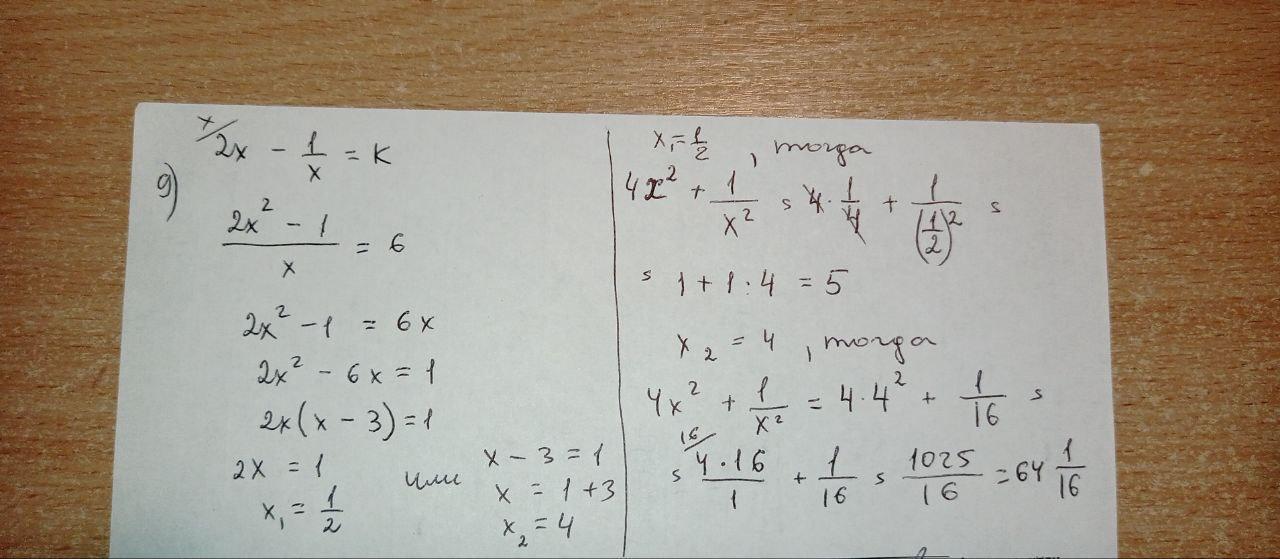 9) 2x - 1/x = K
(2x² - 1)/x = 6
2x² - 1 = 6x
2x² - 6x = 1
2x(x - 3) = 1
2x = 1 или x - 3 = 1
x₁ = 1/2 x = 1 + 3
x₂ = 4
x₁ = 1/2, тогда
4x² + 1/x² = 4 · 1/4 + 1/(1/2)² =
= 1 + 1 · 4 = 5
x₂ = 4, тогда
4x² + 1/x² = 4 · 4² + 1/16 =
= (4 · 16)/1 + 1/16 = 1025/16 = 64 1/16